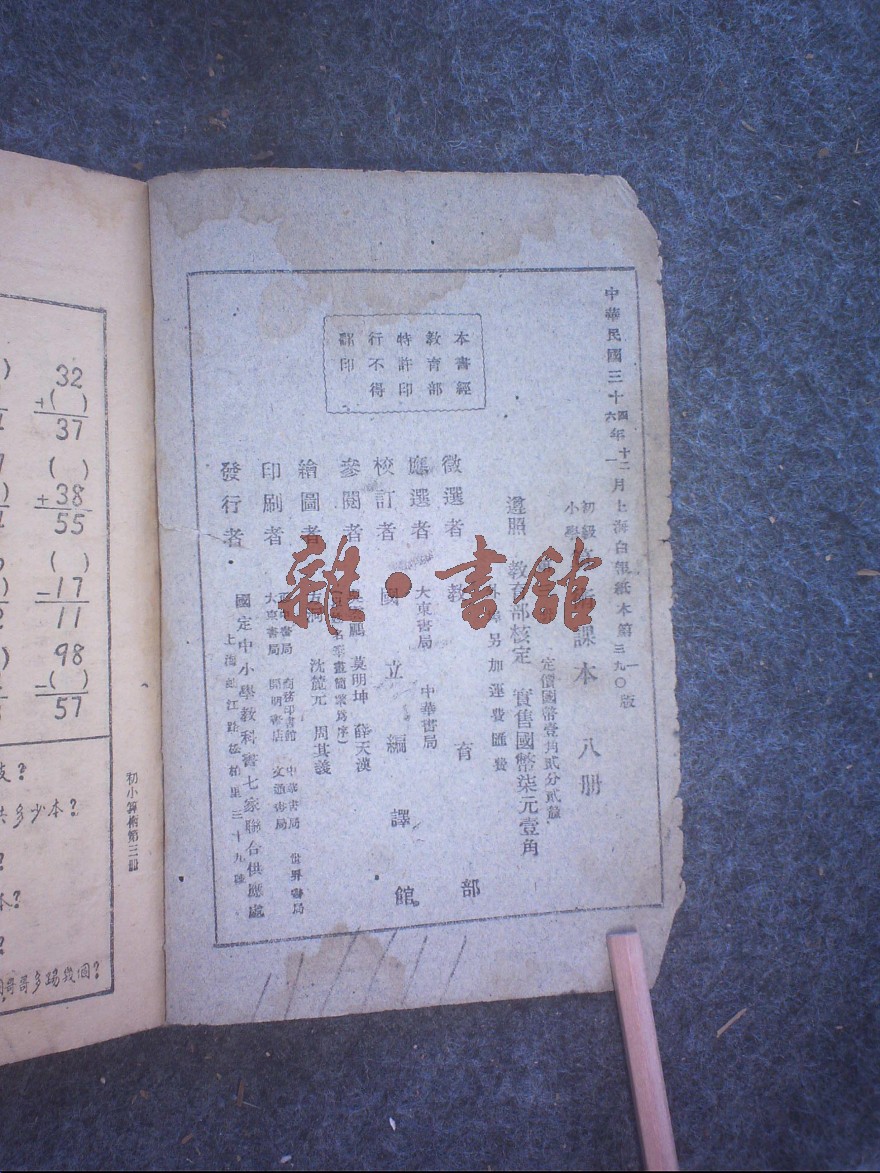 本書經
教育部
特許印
行不得
翻印
中華民國三十四年十二月上海白報紙本第一版
六 一 三九〇
初級
小學
課本 八册
定價國幣壹角貳分貳釐
遵照 教育部核定 實售國幣柒元壹角
另加運費匯費
徵選者 教育部
應選者 大東書局 中華書局
校訂者 國立編譯館
參閱者 莫明坤 薛天漢
名筆畫簡繁爲序)
繪圖者 沈麓元 周其義
印刷者 書局 商務印書館 中華書局 世界書局
大東書局 開明書店 文通書局
發行者 國定中小學教科書七家聯合供應處
上海 江路 柏里三十九號
雜·書館
32
+( )
37
( )
+38
55
( )
-17
11
98
-( )
57
初小算術第三冊
多少本?
哥哥多踢幾個?